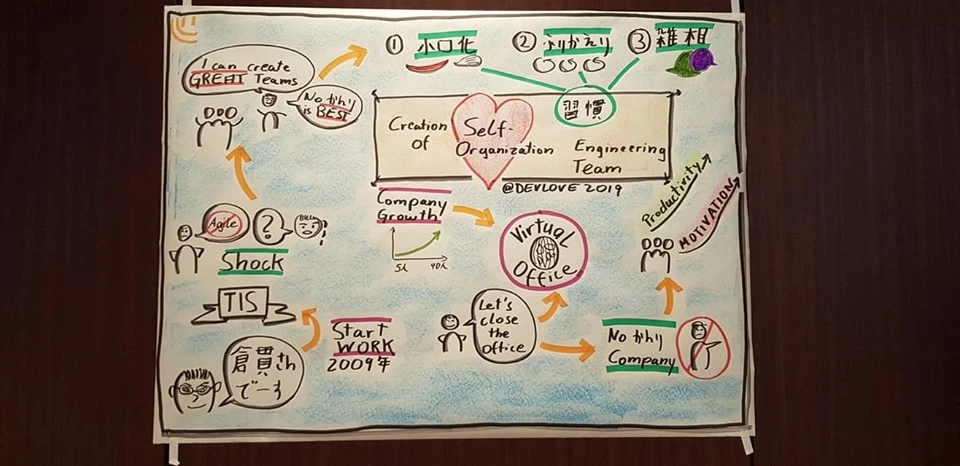 ① 小口化
② ふりかえり
③ 雑相
習慣
Creation of
Self-Organization
Engineering Team
@DEVLOVE 2019
倉貫さん
でーす
Start
WORK
2009年
TIS
Shock
Agile
?
I can create
GREAT Teams
No かんり
is BEST
Company
Growth
5人 40人
Virtual
Office
Let's
close
the
Office
No かんり
Company
Productivity
MOTIVATION